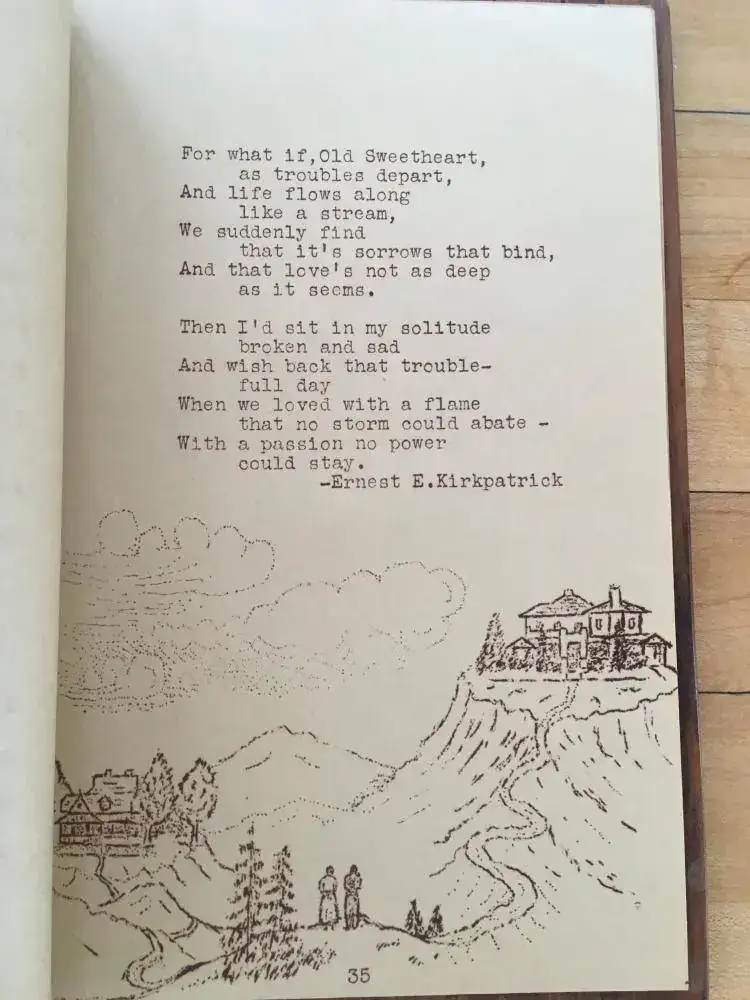 For what if,Old Sweetheart,
as troubles depart,
And life flows along
like a stream,
We suddenly find
that it's sorrows that bind,
And that love's not as deep
as it seems.
Then I'd sit in my solitude
broken and sad
And wish back that trouble-
full day
When we loved with a flame
that no storm could abate -
With a passion no power
could stay.
-Ernest E.Kirkpatrick
35